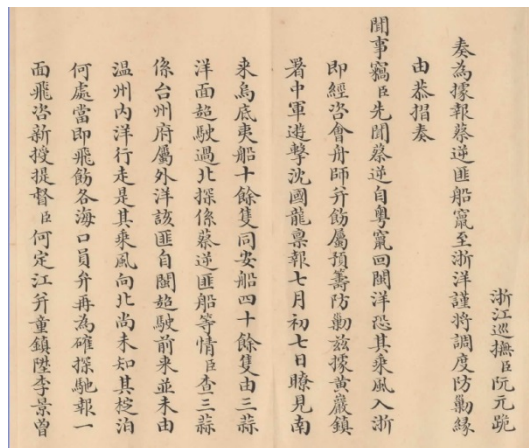 浙江巡撫臣阮元跪
奏為據報蔡逆匪船竄至浙洋謹將調度防勦緣
由恭摺奏
聞事竊臣先聞蔡逆自粵竄回閩洋恐其乘風入浙
即經咨會舟師并飭屬預籌防勦茲據黃巖鎮
署中軍遊擊沈國龍稟報七月初七日瞭見南
來烏底夷船十餘隻同安船四十餘隻由三蒜
洋面趂駛過北探係蔡逆匪船等情臣查三蒜
係台州府屬外洋該匪自閩趂駛前來並未由
温州內洋行走是其乘風向北尚未知其椗泊
何處當即飛飭各海口員弁再為確探馳報一
面飛咨新授提督臣何定江并童鎮陞李景曾